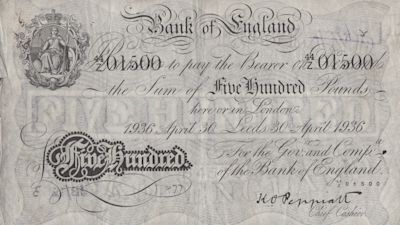 Bank of England
44/Z 01500 I Promise to pay the Bearer on Demand 44/Z 01500
the Sum of Five Hundred Pounds
here or in London
1936 April 30 Leeds 30 April 1936
For the Gov.r and Comp.a
of the Bank of England.
Five Hundred
01500
K O Peppiatt
Chief Cashier